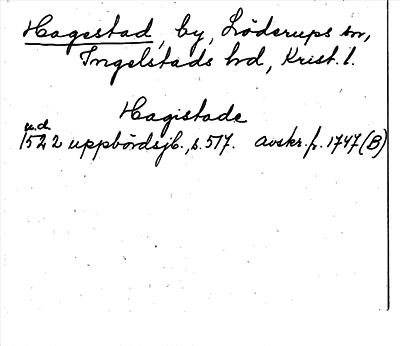 Hagestad, by, Löderups sn,
Ingelstads hd, Krist. l.
Hagistade
u.d.
1522 uppbördsjb., s. 517. avskr. fr. 1747 (B)